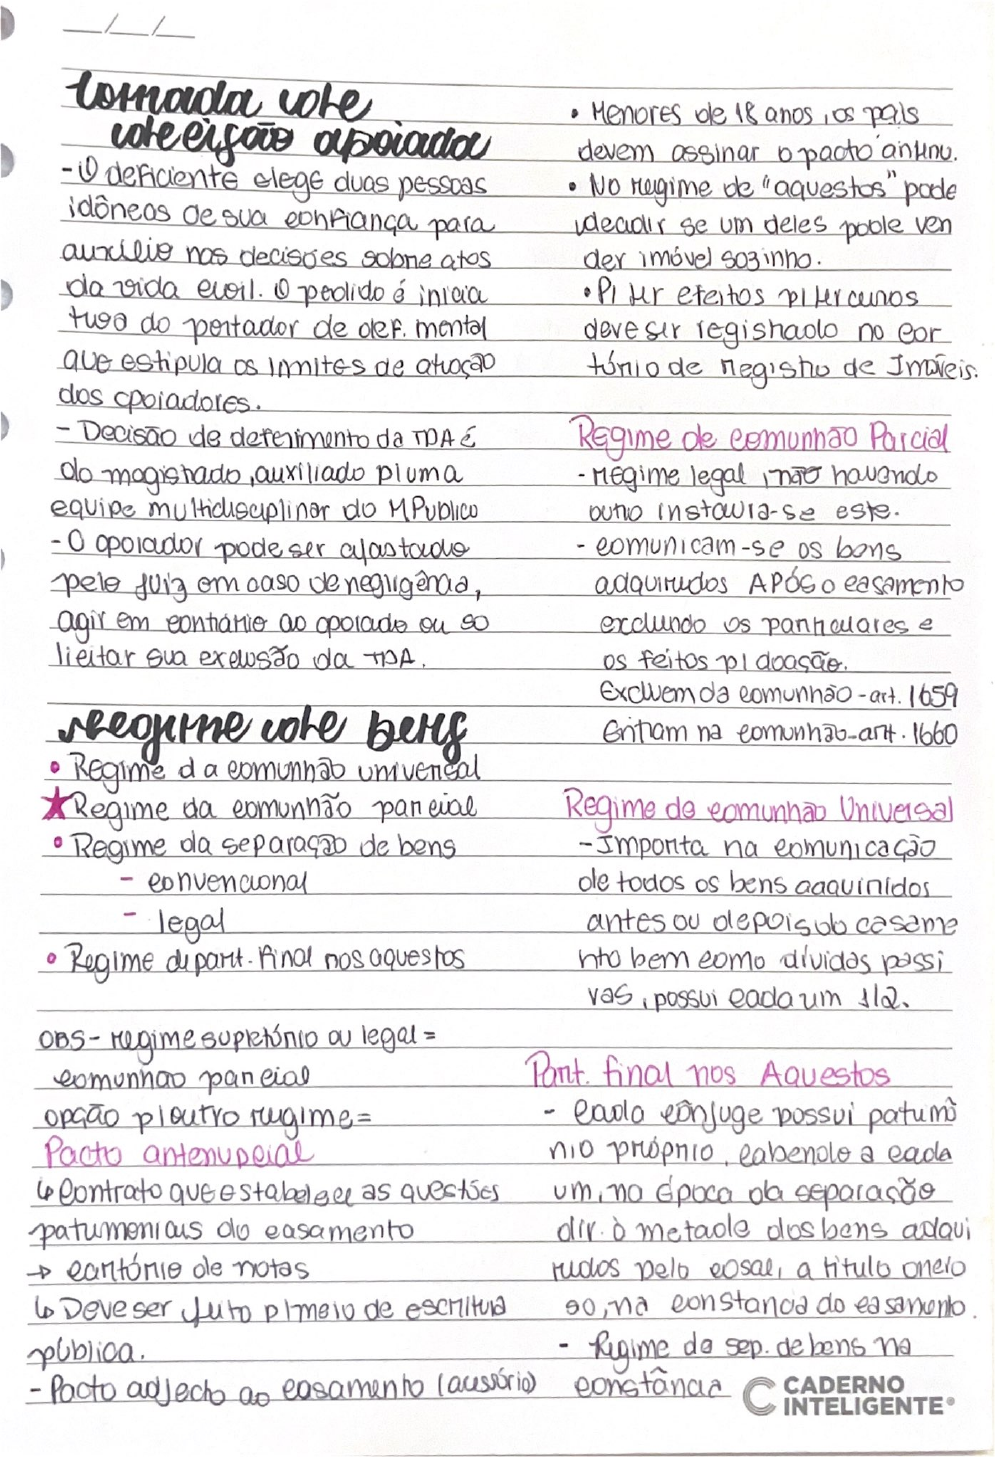 __/__/__
tomada de
decisão apoiada
- O deficiente elege duas pessoas
idôneas de sua confiança para
auxílio nas decisões sobre atos
da vida civil. O pedido é inicia
tiva do portador de def. mental
que estipula os limites de atuação
dos apoiadores.
- Decisão de deferimento da TDA é
do magistrado, auxiliado p/ uma
equipe multidisciplinar do MPublico
- O apoiador pode ser afastado
pelo juiz em caso de negligência,
agir em contrário ao apoiado ou so
licitar sua exclusão da TDA.
regime de bens
• Regime da comunhão universal
★ Regime da comunhão parcial
• Regime da separação de bens
- convencional
- legal
• Regime de part. final nos aquestos
OBS - regime supletório ou legal =
comunhão parcial
opção p/ outro regime =
Pacto antenupcial
↳ Contrato que estabelece as questões
patrimoniais do casamento
→ cartório de notas
↳ Deve ser feito p/ meio de escritura
pública.
- Pacto adjecto ao casamento (acessório)
• Menores de 18 anos, os pais
devem assinar o pacto antinu.
• No regime de "aquestos" pode
decidir se um deles pode ven
der imóvel sozinho.
• P/ ter efeitos p/ terceiros
deve ser registrado no car
tório de registro de Imóveis.
Regime de comunhão Parcial
- regime legal, não havendo
outro instaura-se este.
- comunicam-se os bens
adquiridos APÓS o casamento
excluindo os particulares e
os feitos p/ doação.
Excluem da comunhão - art. 1659
Entram na comunhão - art. 1660
Regime de comunhão Universal
- Importa na comunicação
de todos os bens adquiridos
antes ou depois do casame
nto bem como dívidas passi
vas, possui cada um 1/2.
Part. final nos Aquestos
- cada cônjuge possui patrimô
nio próprio, cabendo a cada
um, na época da separação
dir. à metade dos bens adqui
ridos pelo casal, a titulo onero
so, na constancia do casamento.
- Regime de sep. de bens na
constância
CADERNO
INTELIGENTE®